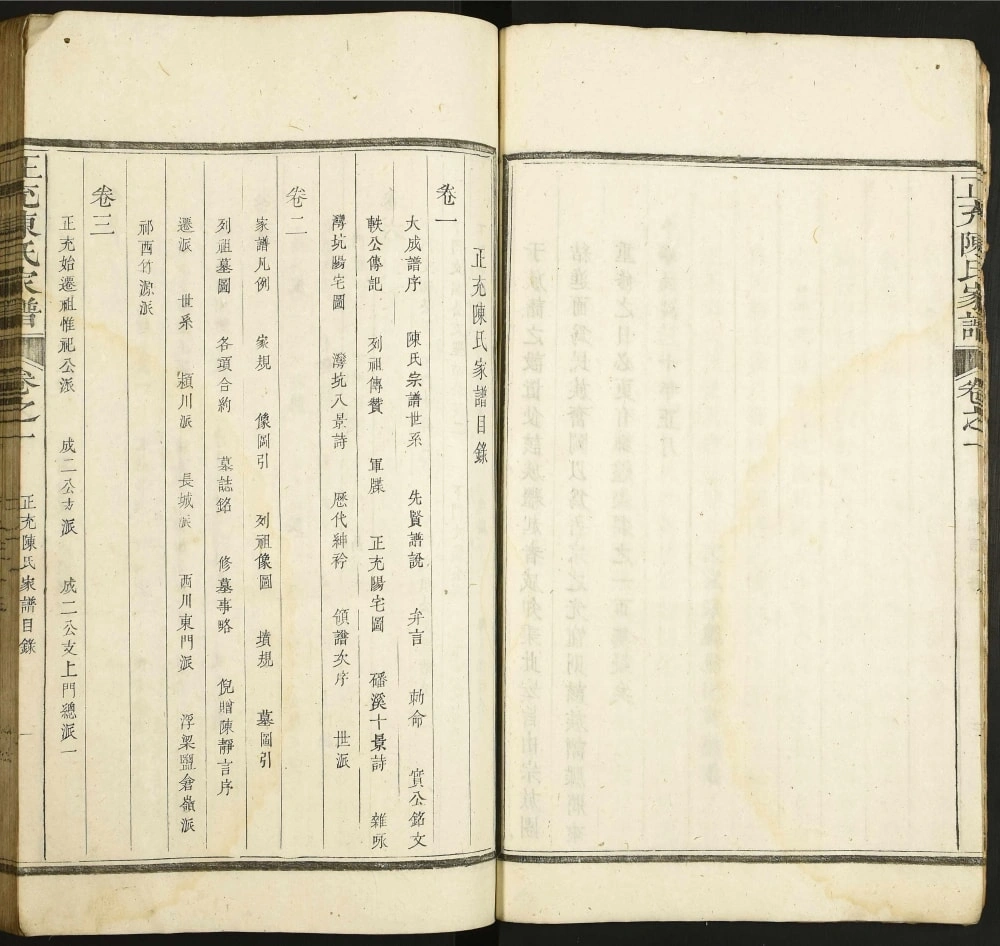 正充陳氏家譜
卷之一
正充陳氏家譜目錄
卷一
大成譜序 陳氏宗譜世系 先賢譜說 弁言 勅命 實公銘文
軼公傳記 列祖傳贊 軍牒 正充陽宅圖 磻溪十景詩 雜咏
灣坑陽宅圖 灣坑八景詩 歷代紳衿 領譜次序 世派
卷二
家譜凡例 家規 像圖引 列祖像圖 墳規 墓圖引
列祖墓圖 各項合約 墓誌銘 修墓事略 倪贈陳靜言序
遷派 世系 潁川派 長城派 西川東門派 浮梁鹽倉嶺派
祁西竹源派
卷三
正充始遷祖惟祀公派 成二公支派 成二公支上門總派一
正充陳氏家譜
卷之一
正充陳氏家譜目錄
一